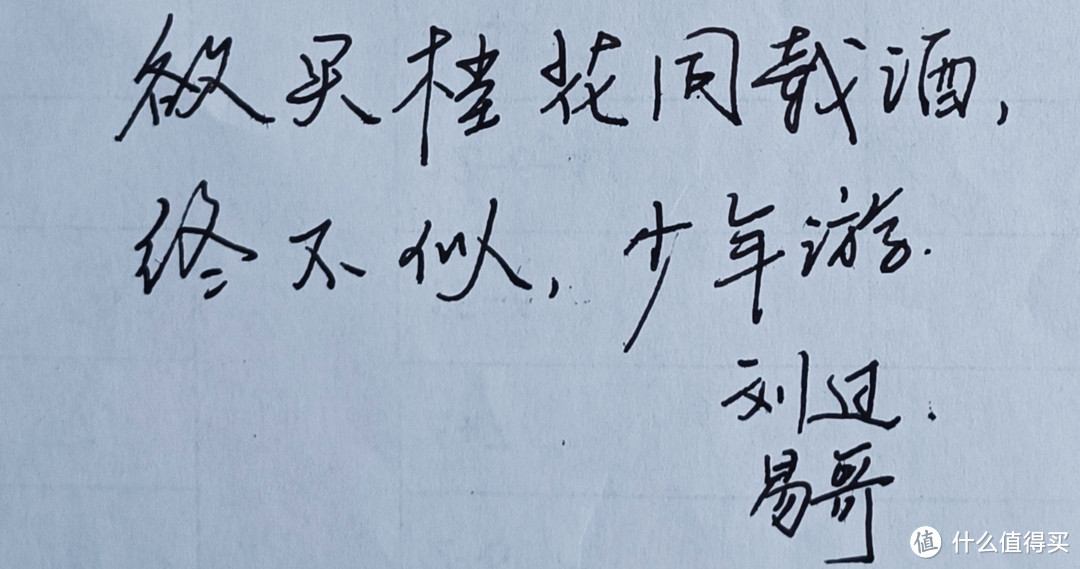 欲买桂花同载酒,
终不似,少年游.
刘过.
易哥
值 什么值得买